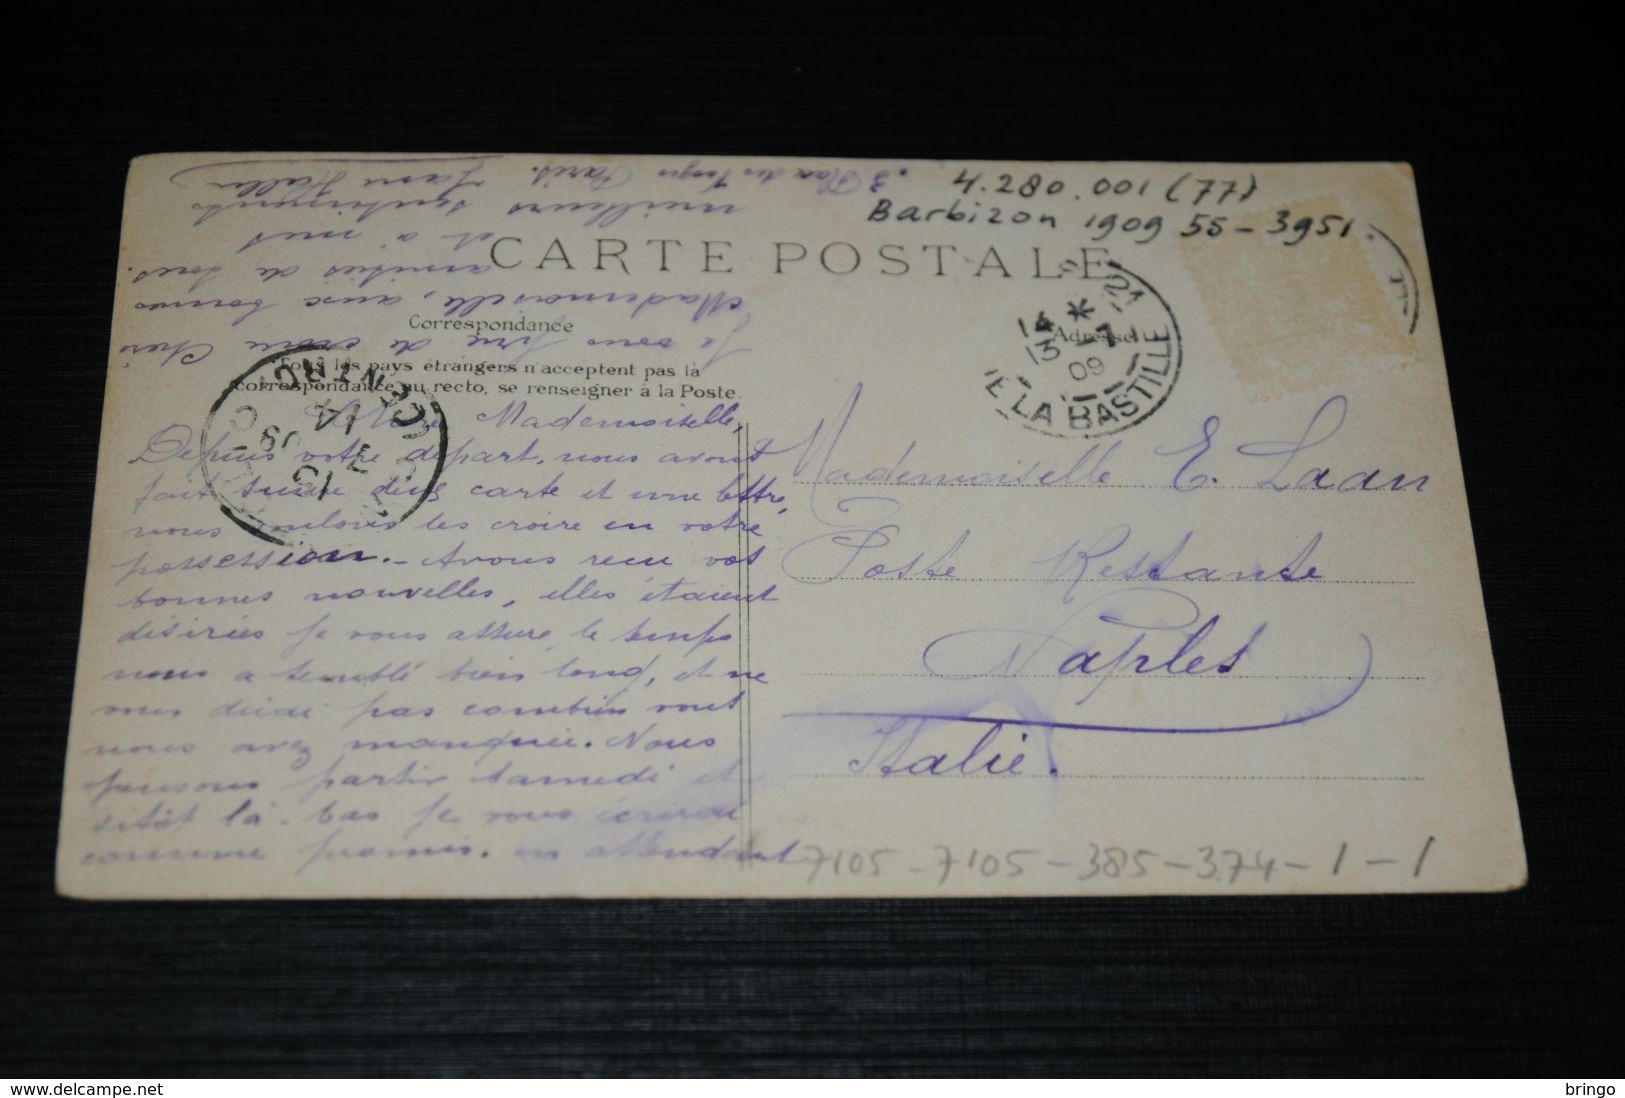 4.280.001 (77)
Barbizon 1909 55-3951.
CARTE POSTALE
Correspondance
Adresse
Tous les pays étrangers n'acceptent pas la
correspondance au recto, se renseigner à la Poste.
Mademoiselle,
Depuis votre départ, nous avons
fait suivre deux carte et une lettre,
nous voulons les croire en votre
possession. - Avons reçu vos
bonnes nouvelles, elles étaient
désirées je vous assure, le temps
nous a semblé bien long, et ne
vous dirai pas combien vous
nous avez manquée. Nous
pensons partir samedi et
sitôt là-bas je vous écrirai
comme promis. en attendant
je vous prie de croire Chère
Mademoiselle, aux bonnes
amitiés de tous.
et à mes
meilleurs sentiments
3 Place des Vosges Paris.
Mademoiselle E. Laan
Poste Restante
Naples
Italie.
14 *
13 -7
09
DE LA BASTILLE
CENTRO
14
13 7 09
7105-7105-385-374-1-1
bringo